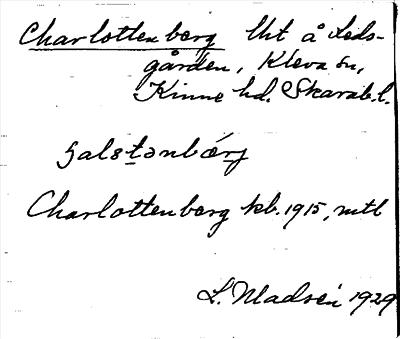 Charlottenberg lht å Leds-
gården, Kleva sn,
Kinne hd. Skarab. l.
Charlottenberg kb. 1915, mtl
L. Madsén 1929